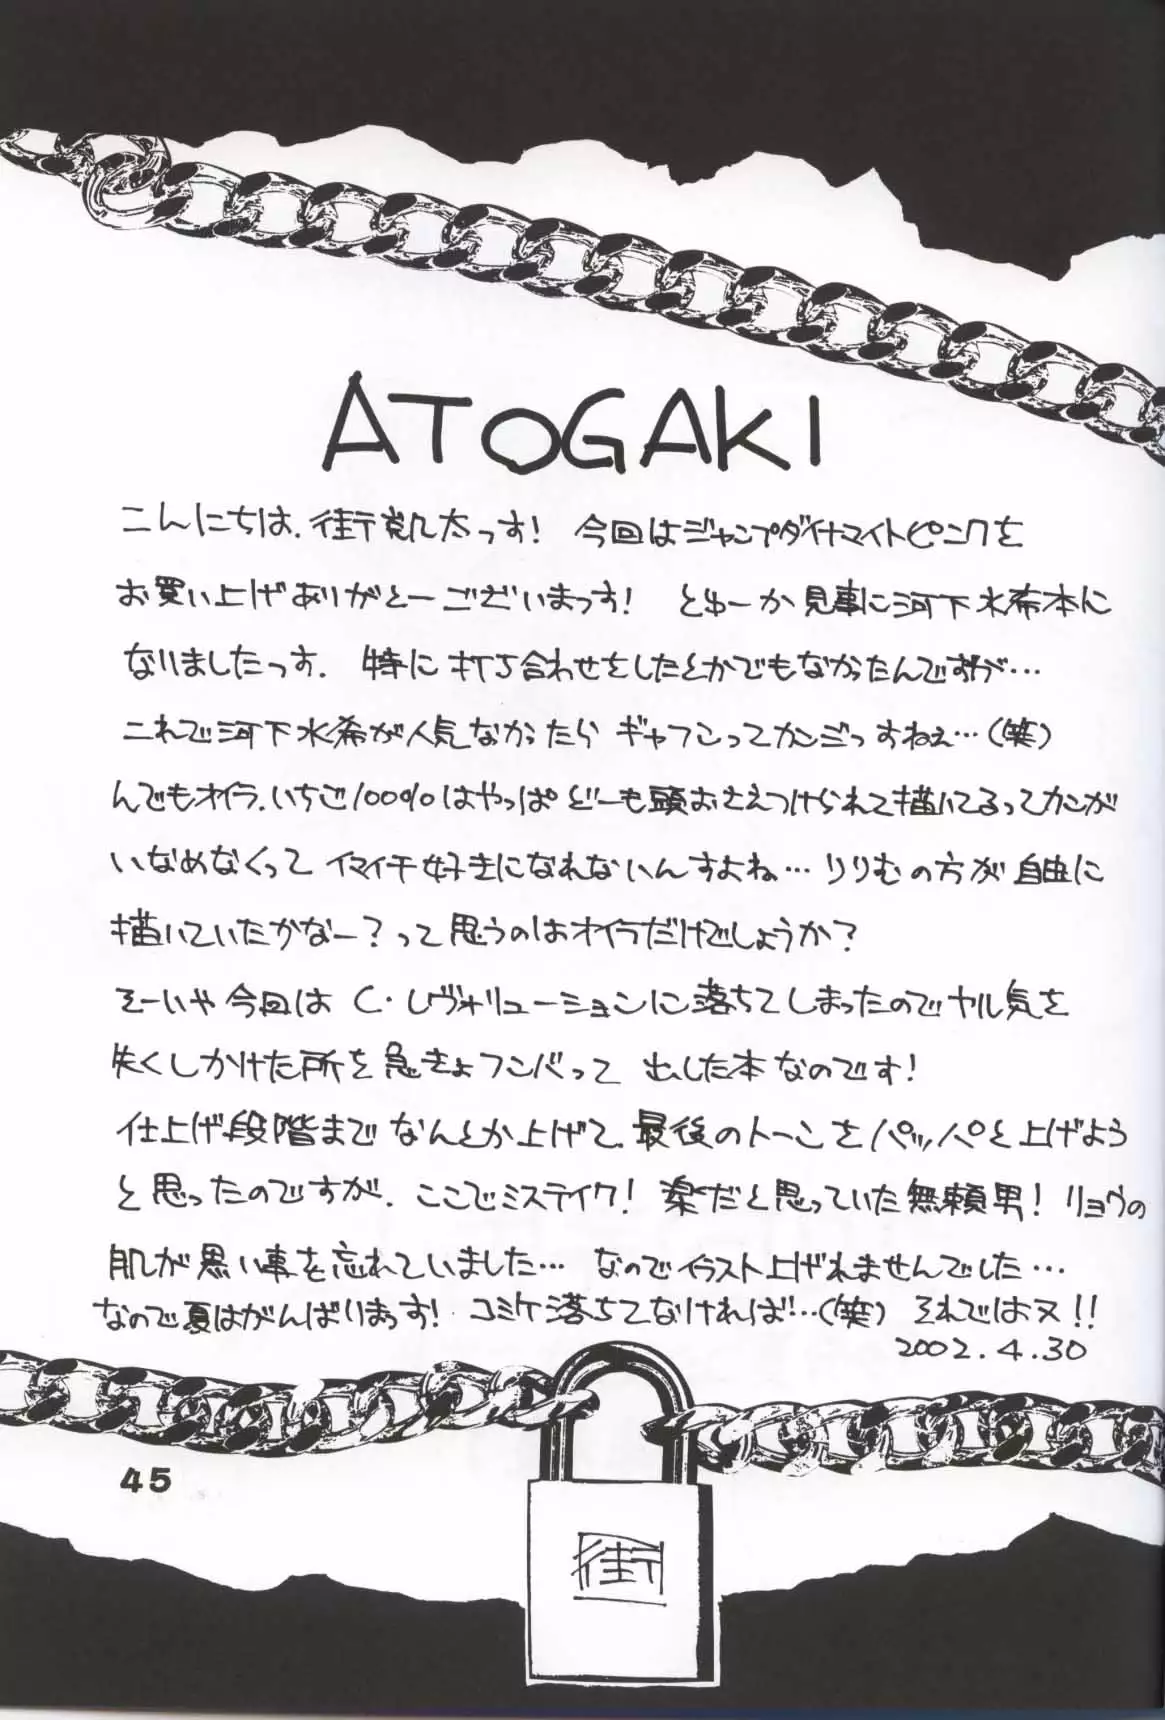 ATOGAKI
こんにちは、街凱太っす! 今回はジャンプダイナマイトピンクを
お買い上げありがとーございまっす! とゆーか見事に河下水希本に
なりましたっす. 特に打ち合わせをしたとかでもなかったんですが…
これで河下水希が人気なかったら ギャフンってカンジっすねぇ…(笑)
んでもオイラ、いちご100%はやっぱ どーも頭おさえつけられて描いてるってカンが
いなめなくって イマイチ好きになれないんすよね… りりむの方が自由に
描いていたかなー?って思うのはオイラだけでしょうか?
そーいや今回は C・レヴォリューションに落ちてしまったのでヤル気を
失くしかけた所を急きょフンバって 出した本なのです!
仕上げ段階までなんとか上げて、最後のトーンをパッパと上げよう
と思ったのですが、ここでミステイク! 楽だと思っていた無頼男! リョウの
肌が黒い事を忘れていました… なのでイラスト上げれませんでした…
なので夏はがんばりまっす! コミケ落ちてなければ!…(笑) それではヌ!!
2002.4.30
45
街